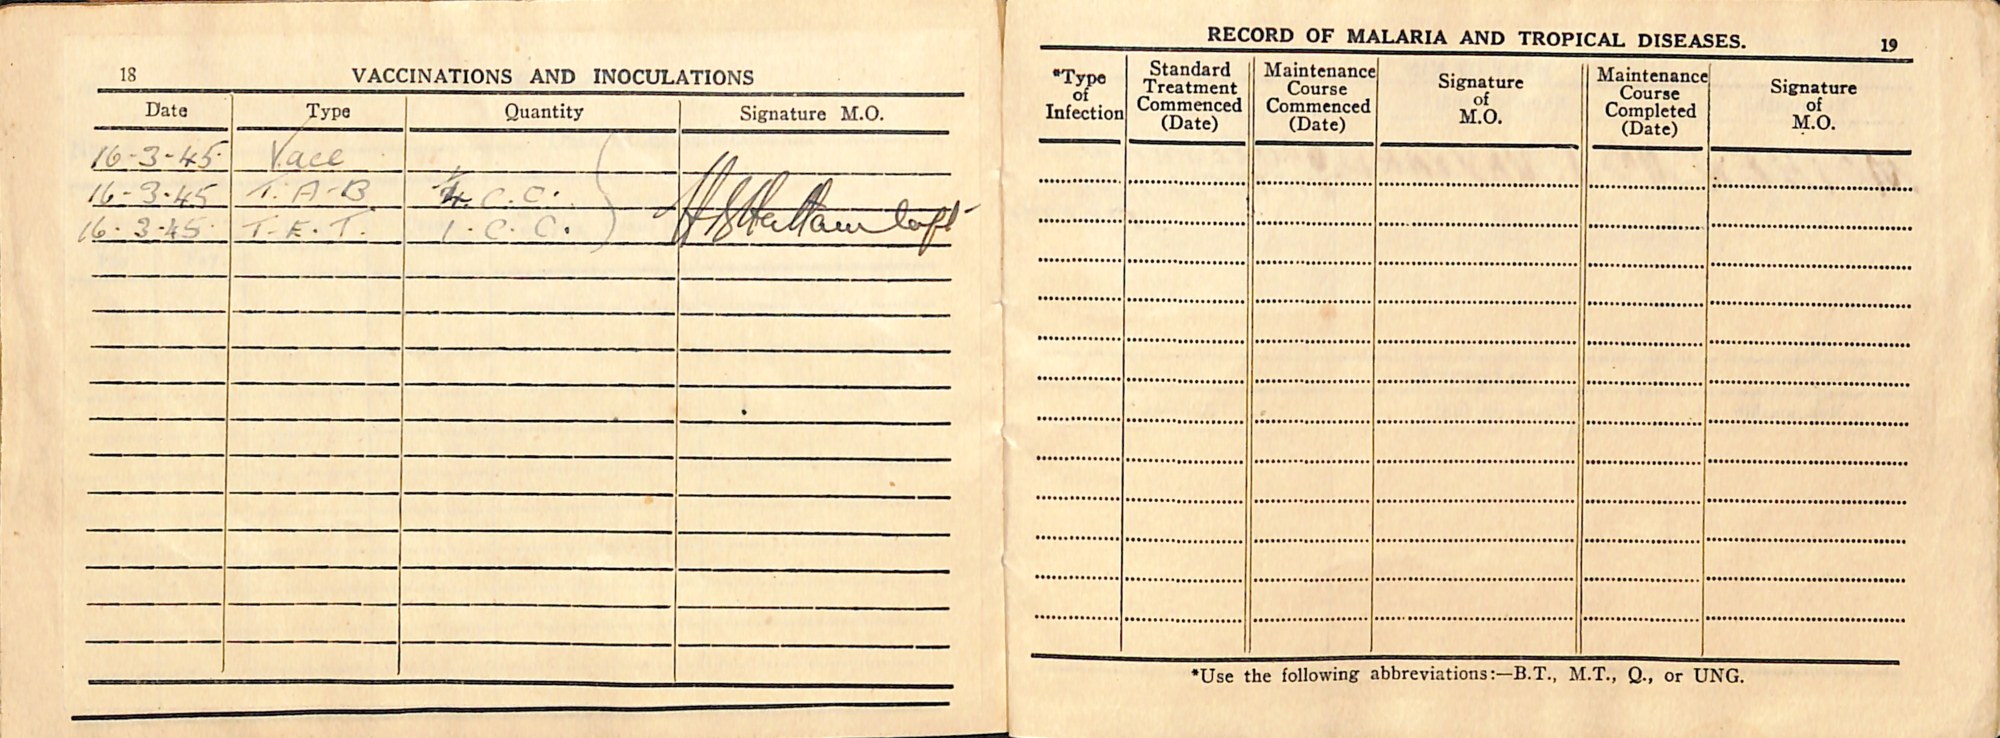 18
VACCINATIONS AND INOCULATIONS
Date Type Quantity Signature M.O.
16-3-45 Vacc
16-3-45 T.A-B C.C.
16-3-45 T.E.T. 1.C.C.
RECORD OF MALARIA AND TROPICAL DISEASES.
19
*Type of Infection
Standard Treatment Commenced (Date)
Maintenance Course Commenced (Date)
Signature of M.O.
Maintenance Course Completed (Date)
Signature of M.O.
*Use the following abbreviations:—B.T., M.T., Q., or UNG.